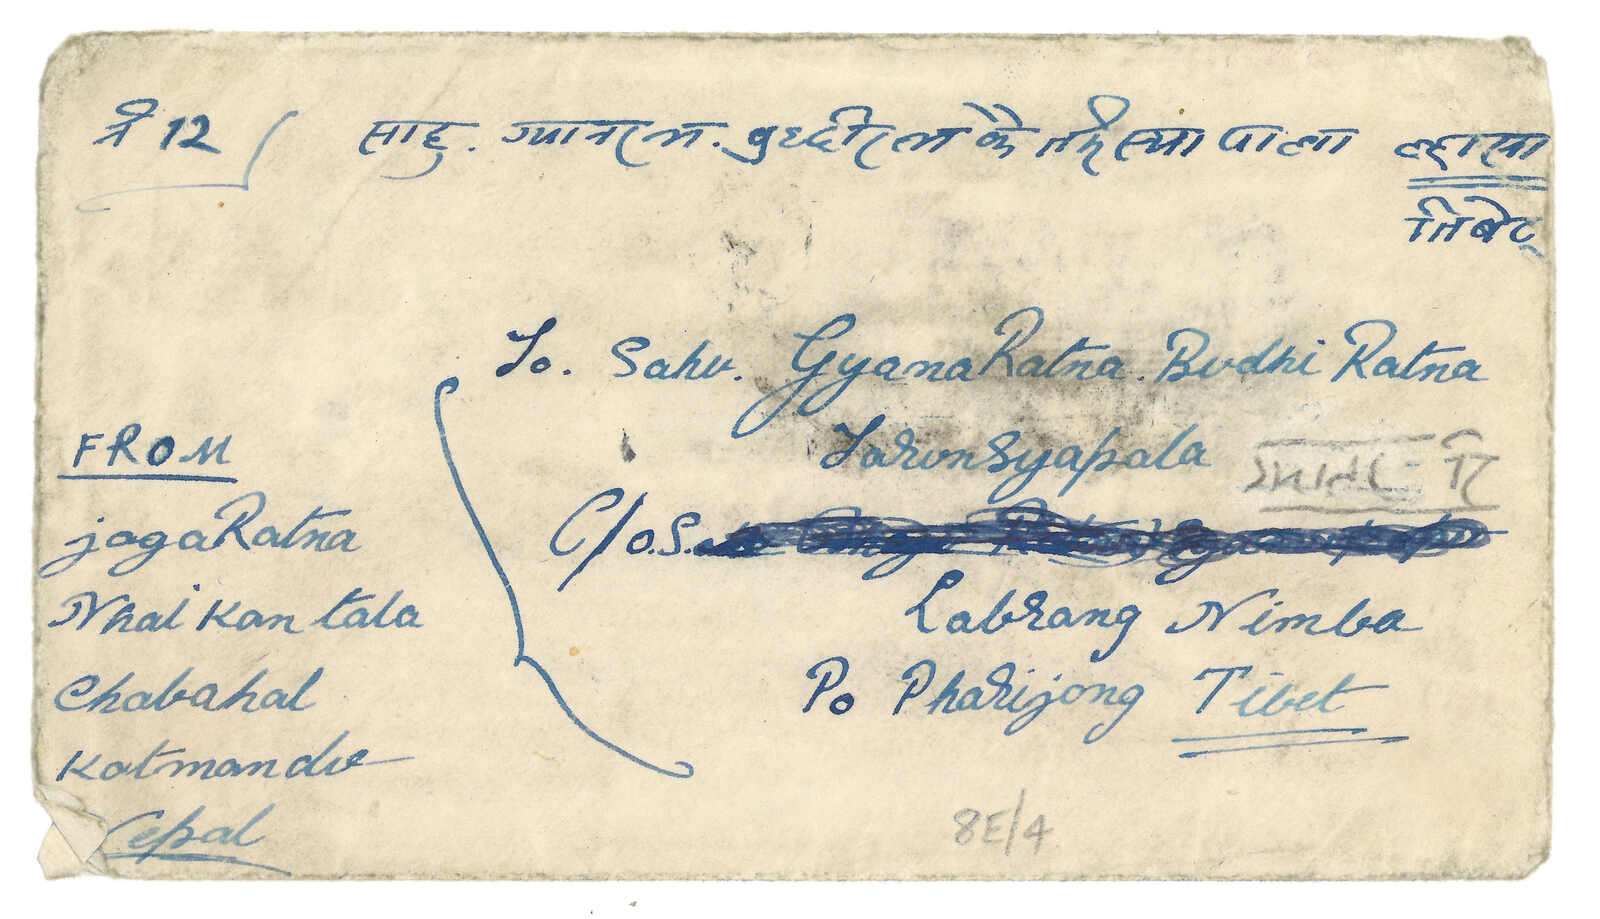 नं 12 साहु. ज्ञानरत्न. बुद्धीरत्न के तारुं स्या पाला ल्हासा
तिबेट
To. Sahu. Gyana Ratna. Budhi Ratna
Tarun Syapala
C/o. S.
Labrang Nimba
Po Pharijong Tibet
FROM
jaga Ratna
Nhai Kan tala
Chabahal
Katmandu
Nepal
8E/4